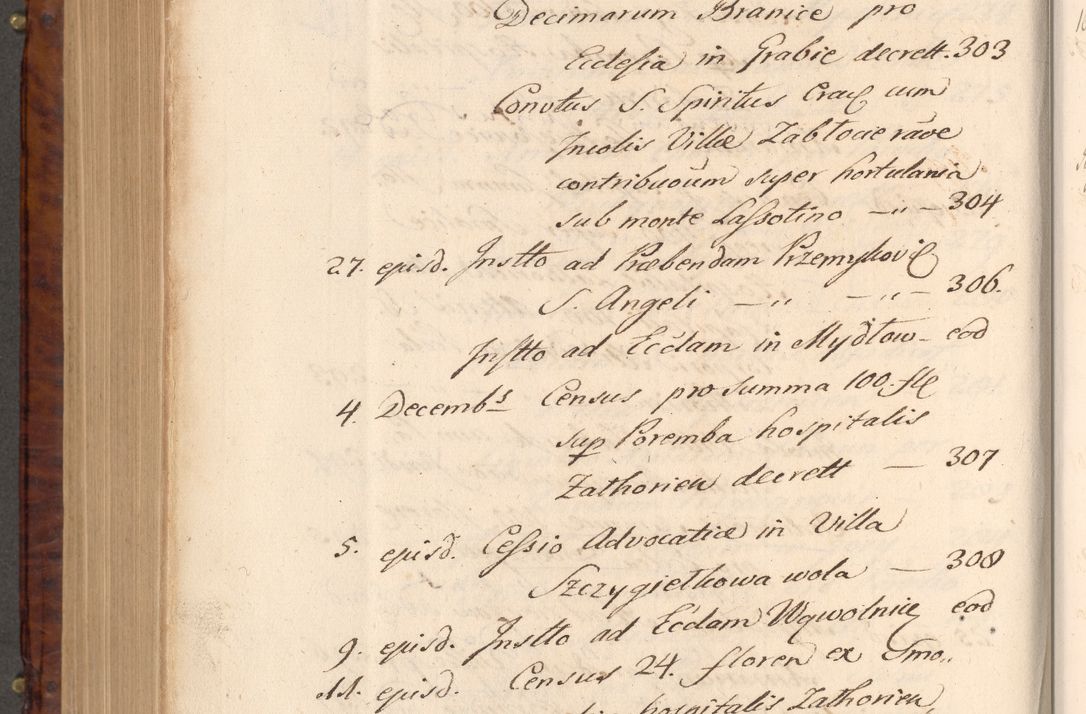 Decimarum Branice pro
Ecclesia in Grabie decrett. 303
Convtus S. Spiritus Crac cum
Incolis Villæ Zabłocie rãoe
contribuoũm super hortulania
sub monte Lassotino —„— 304
27. episd. Instto ad Præbendam Przemykovi
S. Angeli —„ —„— 306.
Instto ad Eccłam in Mydłow- eod
4. Decembs Census pro summa 100. fl
sup Poremba hospitalis
Zathorien decrett — 307
5. episd. Cessio Advocatiæ in Villa
Szczygiethowa wola — 308
9. episd. Instto ad Eccłam Wąwolnic eod
11. episd. Census 24. floren ex Smo„
hospitalis Zathorien